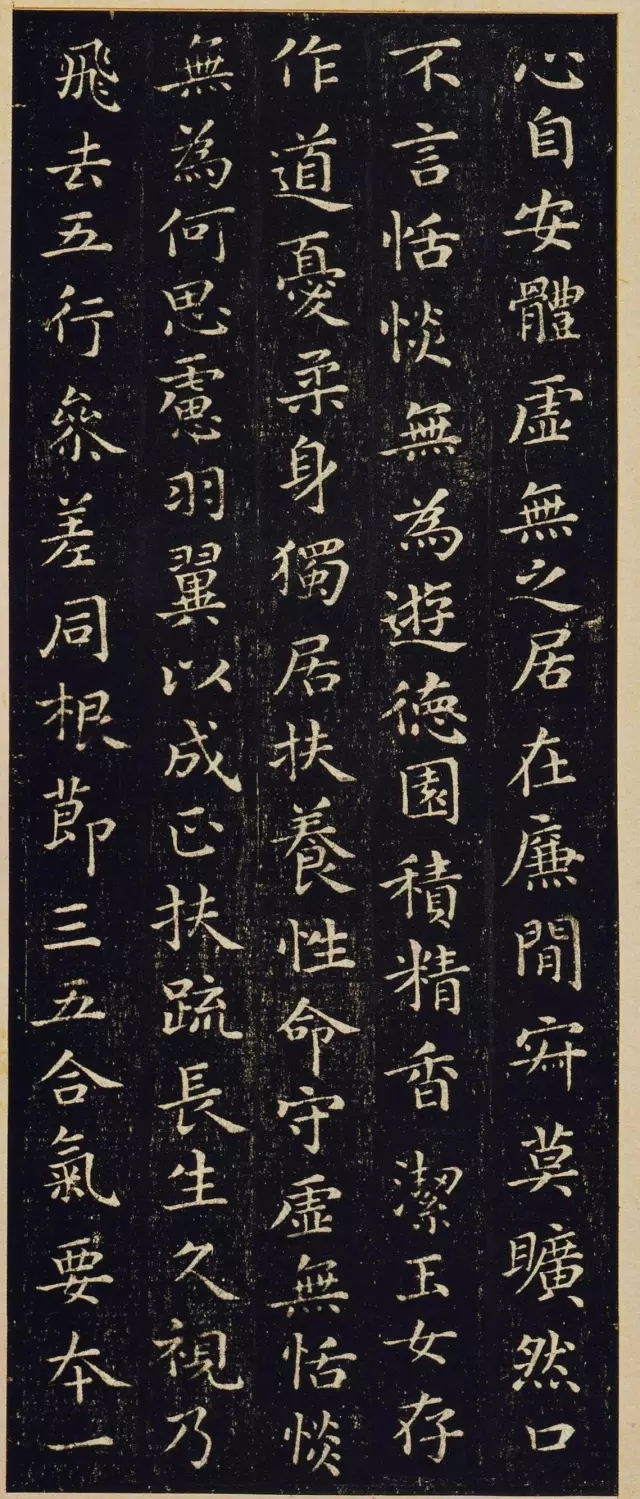 心自安體虛無之居在廉閒㝥莫曠然口
不言恬惔無為遊徳園積精香潔玉女存
作道憂柔身獨居扶養性命守虛無恬惔
無為何思慮羽翼以成正扶疏長生久視乃
飛去五行叅差同根節三五合氣要本一